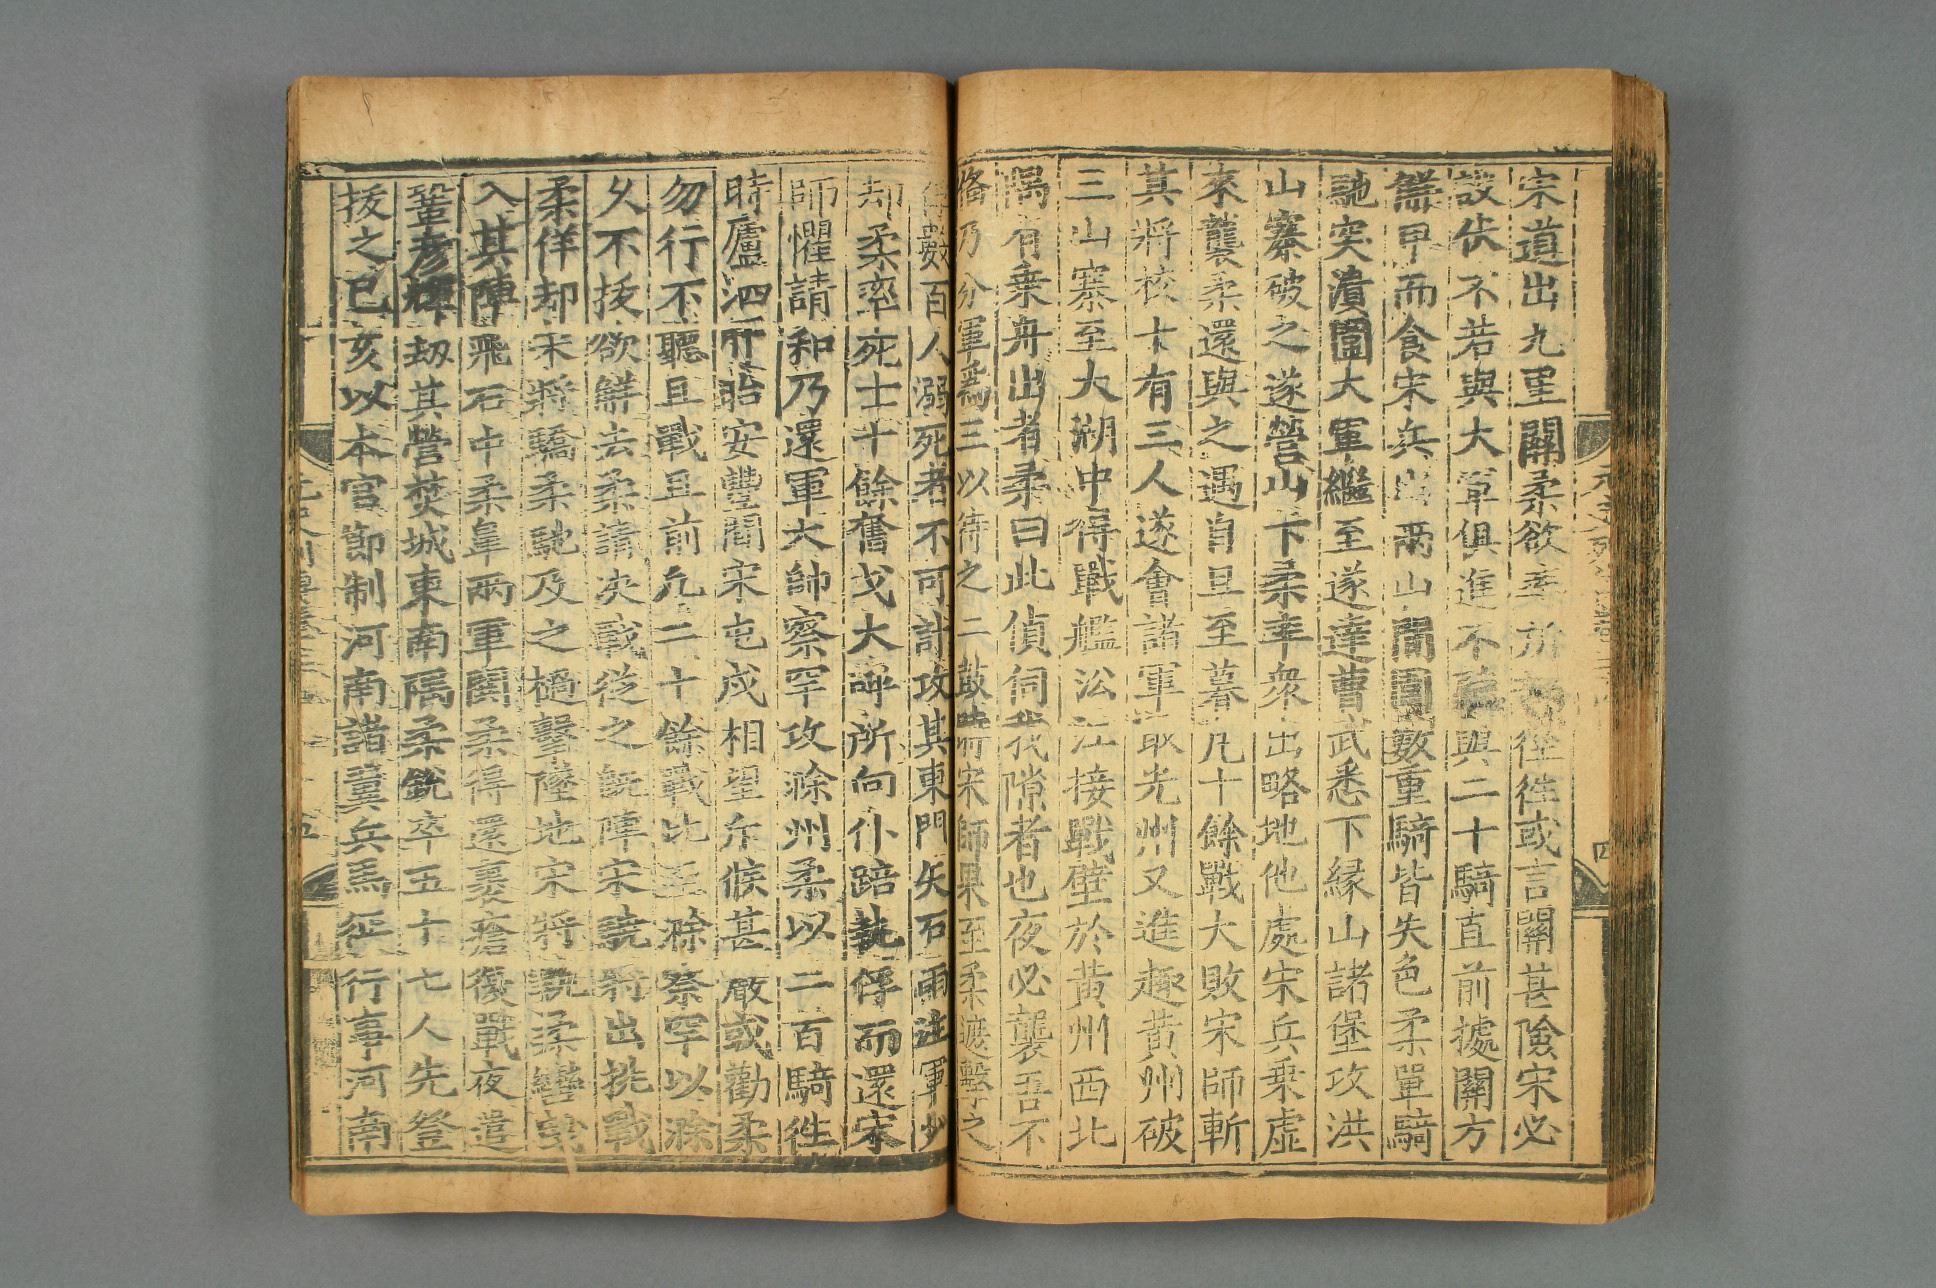 宋道出九里關柔欲乘所 徑徃或言關甚險宋必
設伏不若與大軍俱進不 與二十騎直前據關方
觧甲而食宋兵出兩山間圍數重騎皆失色柔單騎
馳突潰圍大軍繼至遂達曹武悉下縁山諸堡攻洪
山寨破之遂營山下柔率衆出略地他處宋兵乗虛
來襲柔還與之遇自旦至暮凡十餘戰大敗宋師斬
其將校十有三人遂會諸軍取光州又進趣黄州破
三山寨至大湖中得戰艦沿江接戰壁於黃州西北
隅有乗舟出者柔曰此偵伺我隙者也夜必襲吾不
俻乃分軍爲三以待之二鼓時宋師果至柔遮擊之
俘數百人溺死者不可計攻其東門矢石雨注軍少
却柔率死士十餘奮戈大呼所向仆踣執俘而還宋
師懼請和乃還軍大帥察罕攻滁州柔以二百騎徃
時廬泗盱眙安豐間宋屯戍相望斥候甚嚴或勸柔
勿行不聽且戰且前凢二十餘戰比至滁察罕以滁
乆不拔欲觧去柔請决戰從之旣陣宋驍將出挑戰
柔佯却宋將驕柔馳及之檛擊墜地宋將執柔轡曵
入其陣飛石中柔鼻兩軍鬬柔得還裹瘡復戰夜遣
鞏彦暉劫其營焚城東南隅柔銳卒五十七人先登
拔之巳亥以本官節制河南諸翼兵馬征行事河南